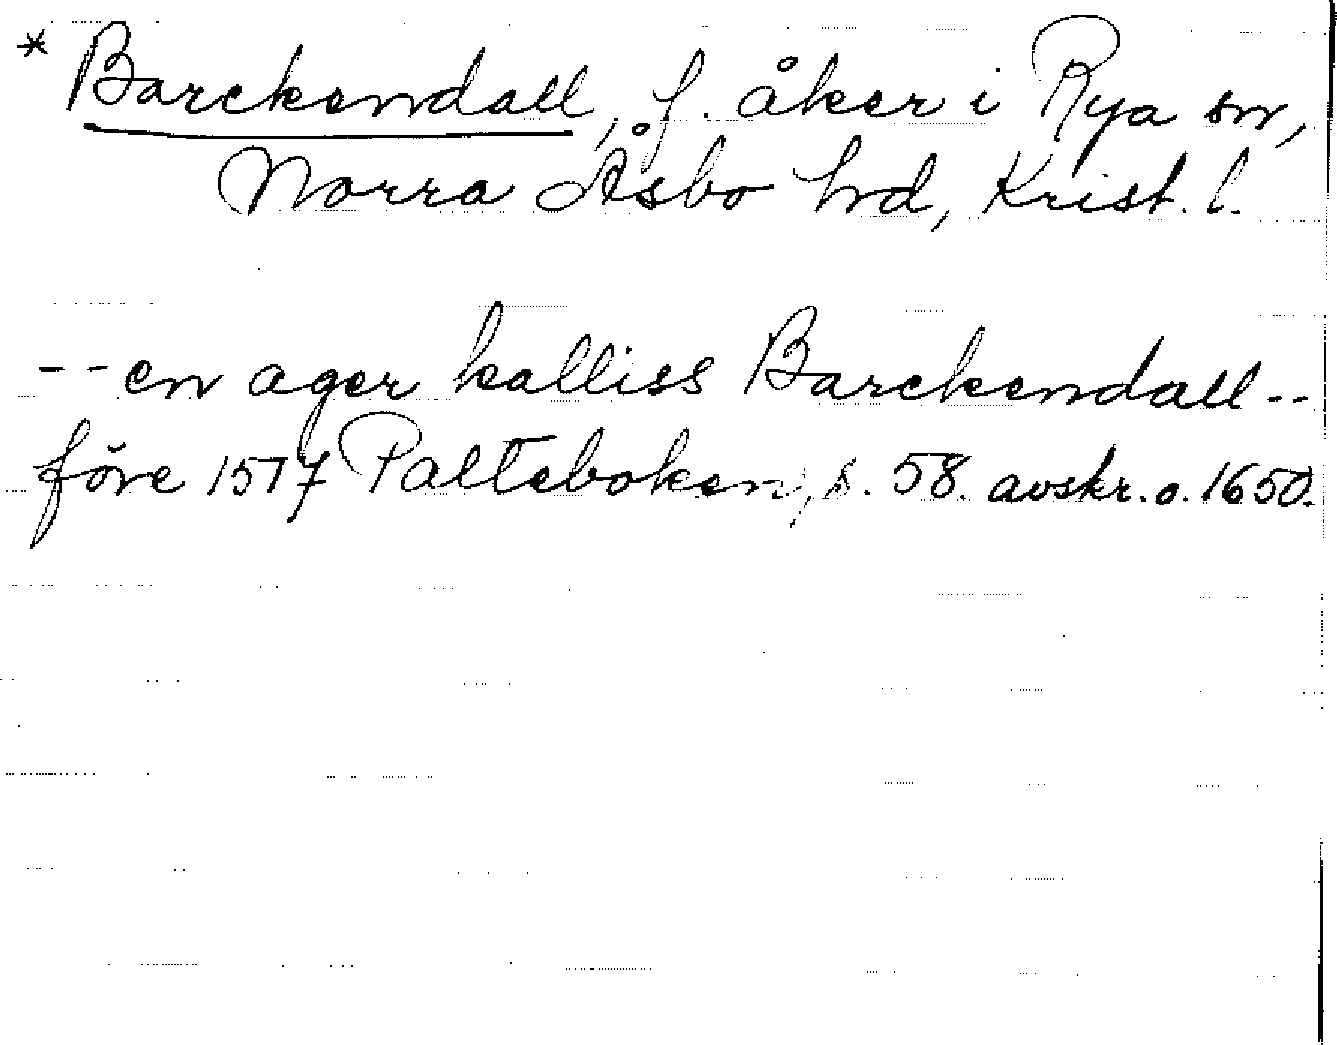 * Barckendall, f. åker i Rya sn,
Norra Åsbo hrd, Krist. l.
-- en ager kalliss Barckendall --
före 1517 Palteboken, s. 58. avskr. o. 1650.